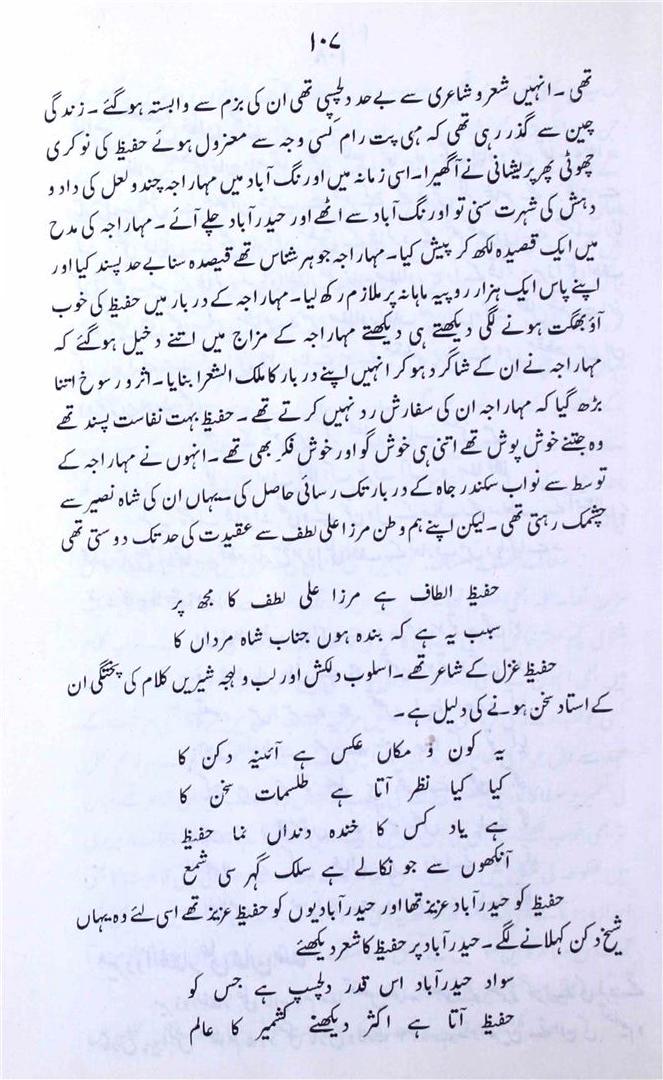 ۱۰۷
تھی۔ انہیں شعر و شاعری سے بے حد دلچسپی تھی ان کی بزم سے وابستہ ہو گئے۔ زندگی
چین سے گذر رہی تھی کہ مہی پت رام کسی وجہ سے معزول ہوئے حفیظ کی نوکری
چھوٹی پھر پریشانی نے آگھیرا۔ اسی زمانہ میں اورنگ آباد میں مہاراجہ چندو لعل کی داد و
دہش کی شہرت سنی تو اورنگ آباد سے اٹھے اور حیدرآباد چلے آئے۔ مہاراجہ کی مدح
میں ایک قصیدہ لکھ کر پیش کیا۔ مہاراجہ جوہر شناس تھے قیصدہ سنا بے حد پسند کیا اور
اپنے پاس ایک ہزار روپیہ ماہانہ پر ملازم رکھ لیا۔ مہاراجہ کے دربار میں حفیظ کی خوب
آؤ بھگت ہونے لگی دیکھتے ہی دیکھتے مہاراجہ کے مزاج میں اتنے دخیل ہو گئے کہ
مہاراجہ نے ان کے شاگرد ہو کر انہیں اپنے دربار کا ملک الشعرا بنایا۔ اثر و رسوخ اتنا
بڑھ گیا کہ مہاراجہ ان کی سفارش رد نہیں کرتے تھے۔ حفیظ بہت نفاست پسند تھے
وہ جتنے خوش پوش تھے اتنی ہی خوش گو اور خوش فکر بھی تھے۔ انہوں نے مہاراجہ کے
توسط سے نواب سکندر جاہ کے دربار تک رسائی حاصل کی۔ یہاں ان کی شاہ نصیر سے
چشمک رہتی تھی۔ لیکن اپنے ہم وطن مرزا علی لطف سے عقیدت کی حد تک دوستی تھی
حفیظ الطاف ہے مرزا علی لطف کا مجھ پر
سبب یہ ہے کہ بندہ ہوں جناب شاہ مرداں کا
حفیظ غزل کے شاعر تھے۔ اسلوب دلکش اور لب و لہجہ شیریں کلام کی پختگی ان
کے استاد سخن ہونے کی دلیل ہے۔
یہ کون و مکاں عکس ہے آئنیہ دکن کا
کیا کیا نظر آتا ہے طلسمات سخن کا
ہے یاد کس کا خندہ دنداں نما حفیظ
آنکھوں سے جو نکالے ہے سلک گہر سی شمع
حفیظ کو حیدرآباد عزیز تھا اور حیدرآبادیوں کو حفیظ عزیز تھے اسی لئے وہ یہاں
شیخ دکن کہلانے لگے۔ حیدرآباد پر حفیظ کا شعر دیکھئے
سواد حیدرآباد اس قدر دلچسپ ہے جس کو
حفیظ آتا ہے اکثر دیکھنے کشمیر کا عالم